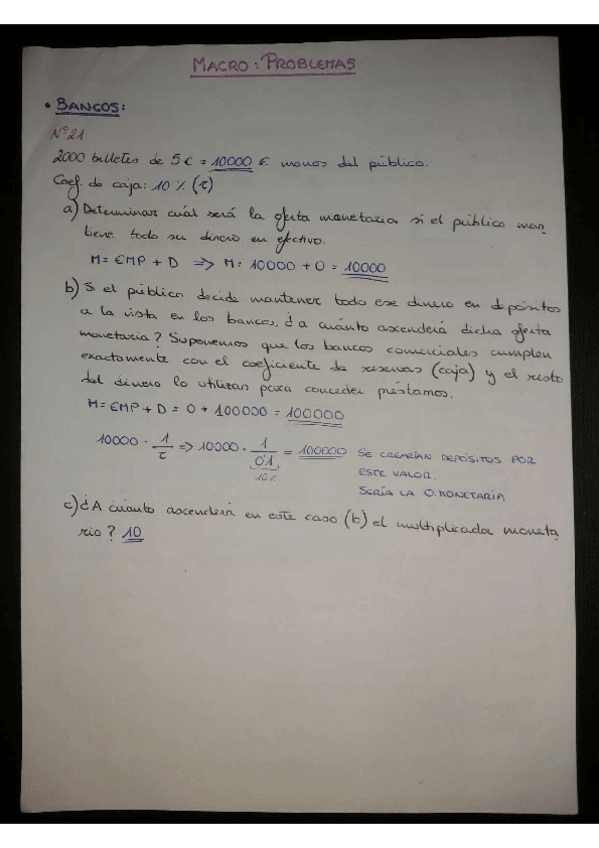 MACRO: PROBLEMAS
• BANCOS:
Nº21
2000 billetes de 5€ = 10000 € manos del público.
Coef. de caja: 10% (τ)
a) Determinar cuál será la oferta monetaria si el público man
tiene todo su dinero en efectivo.
M = EMP + D => M = 10000 + 0 = 10000
b) Si el público decide mantener todo ese dinero en depósitos
a la vista en los bancos, ¿a cuánto ascenderá dicha oferta
monetaria? Suponemos que los bancos comerciales cumplen
exactamente con el coeficiente de reservas (caja) y el resto
del dinero lo utilizan para conceder préstamos.
M = EMP + D = 0 + 100000 = 100000
10000 · 1/τ => 10000 · 1/0'1 = 100000 SE CREARÍAN DEPÓSITOS POR
10% ESTE VALOR.
SERÍA LA O.MONETARIA
c) ¿A cuánto ascenderá en este caso (b) el multiplicador moneta
rio? 10